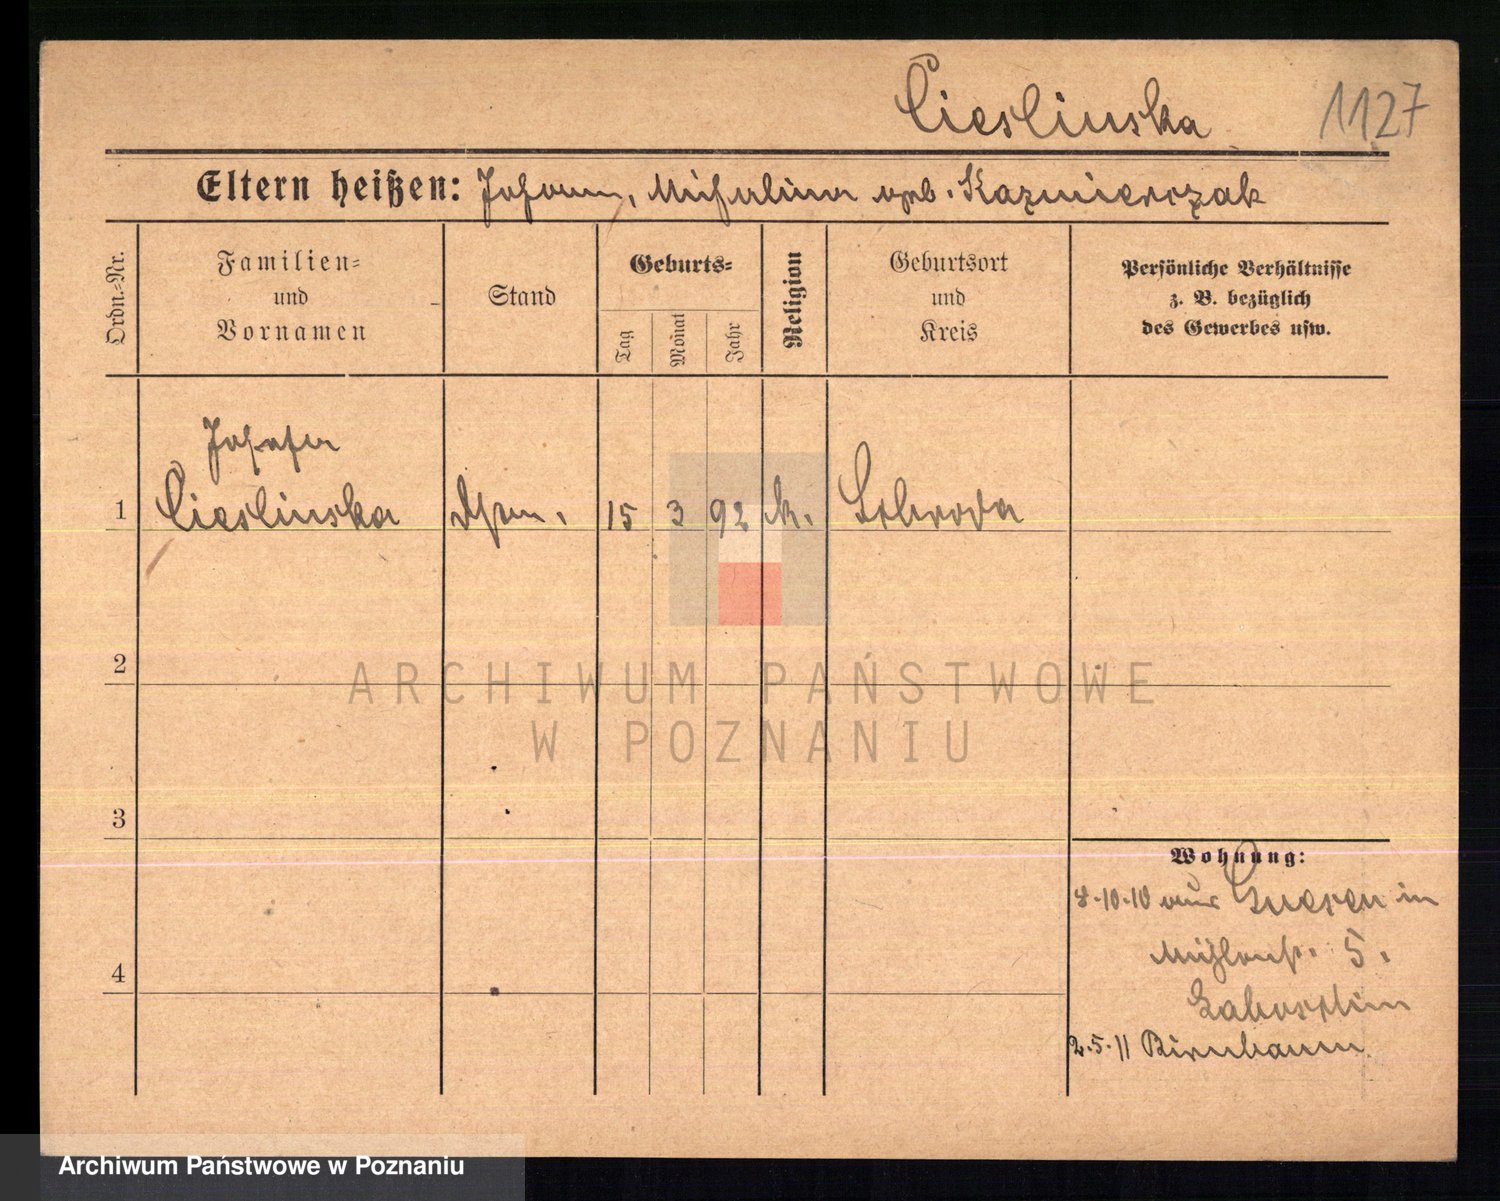 Cieslinska 1127
Eltern heißen: Johann, Michalina geb. Kazmierczak
Ordn.-Nr.
Familien-
und
Vornamen
Stand
Geburts-
Tag
Monat
Jahr
Religion
Geburtsort
und
Kreis
Persönliche Verhältnisse
z. B. bezüglich
des Gewerbes usw.
Josefa
1 Cieslinska 15 3 92 k. Schroda
2
ARCHIWUM PAŃSTWOWE
W POZNANIU
3
Wohnung:
8.10.10 aus Gnesen in
Mühlenst. 5.
4
2.5.11 Birnbaum
Archiwum Państwowe w Poznaniu